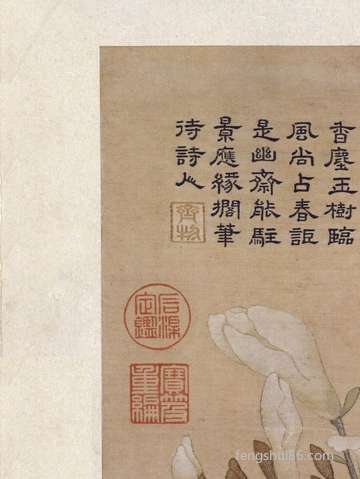 香塵玉樹臨
風尚占春詎
是幽齋能駐
景應緣擱筆
待詩人
石渠定鑑
寶笈重編
fengshui86.com